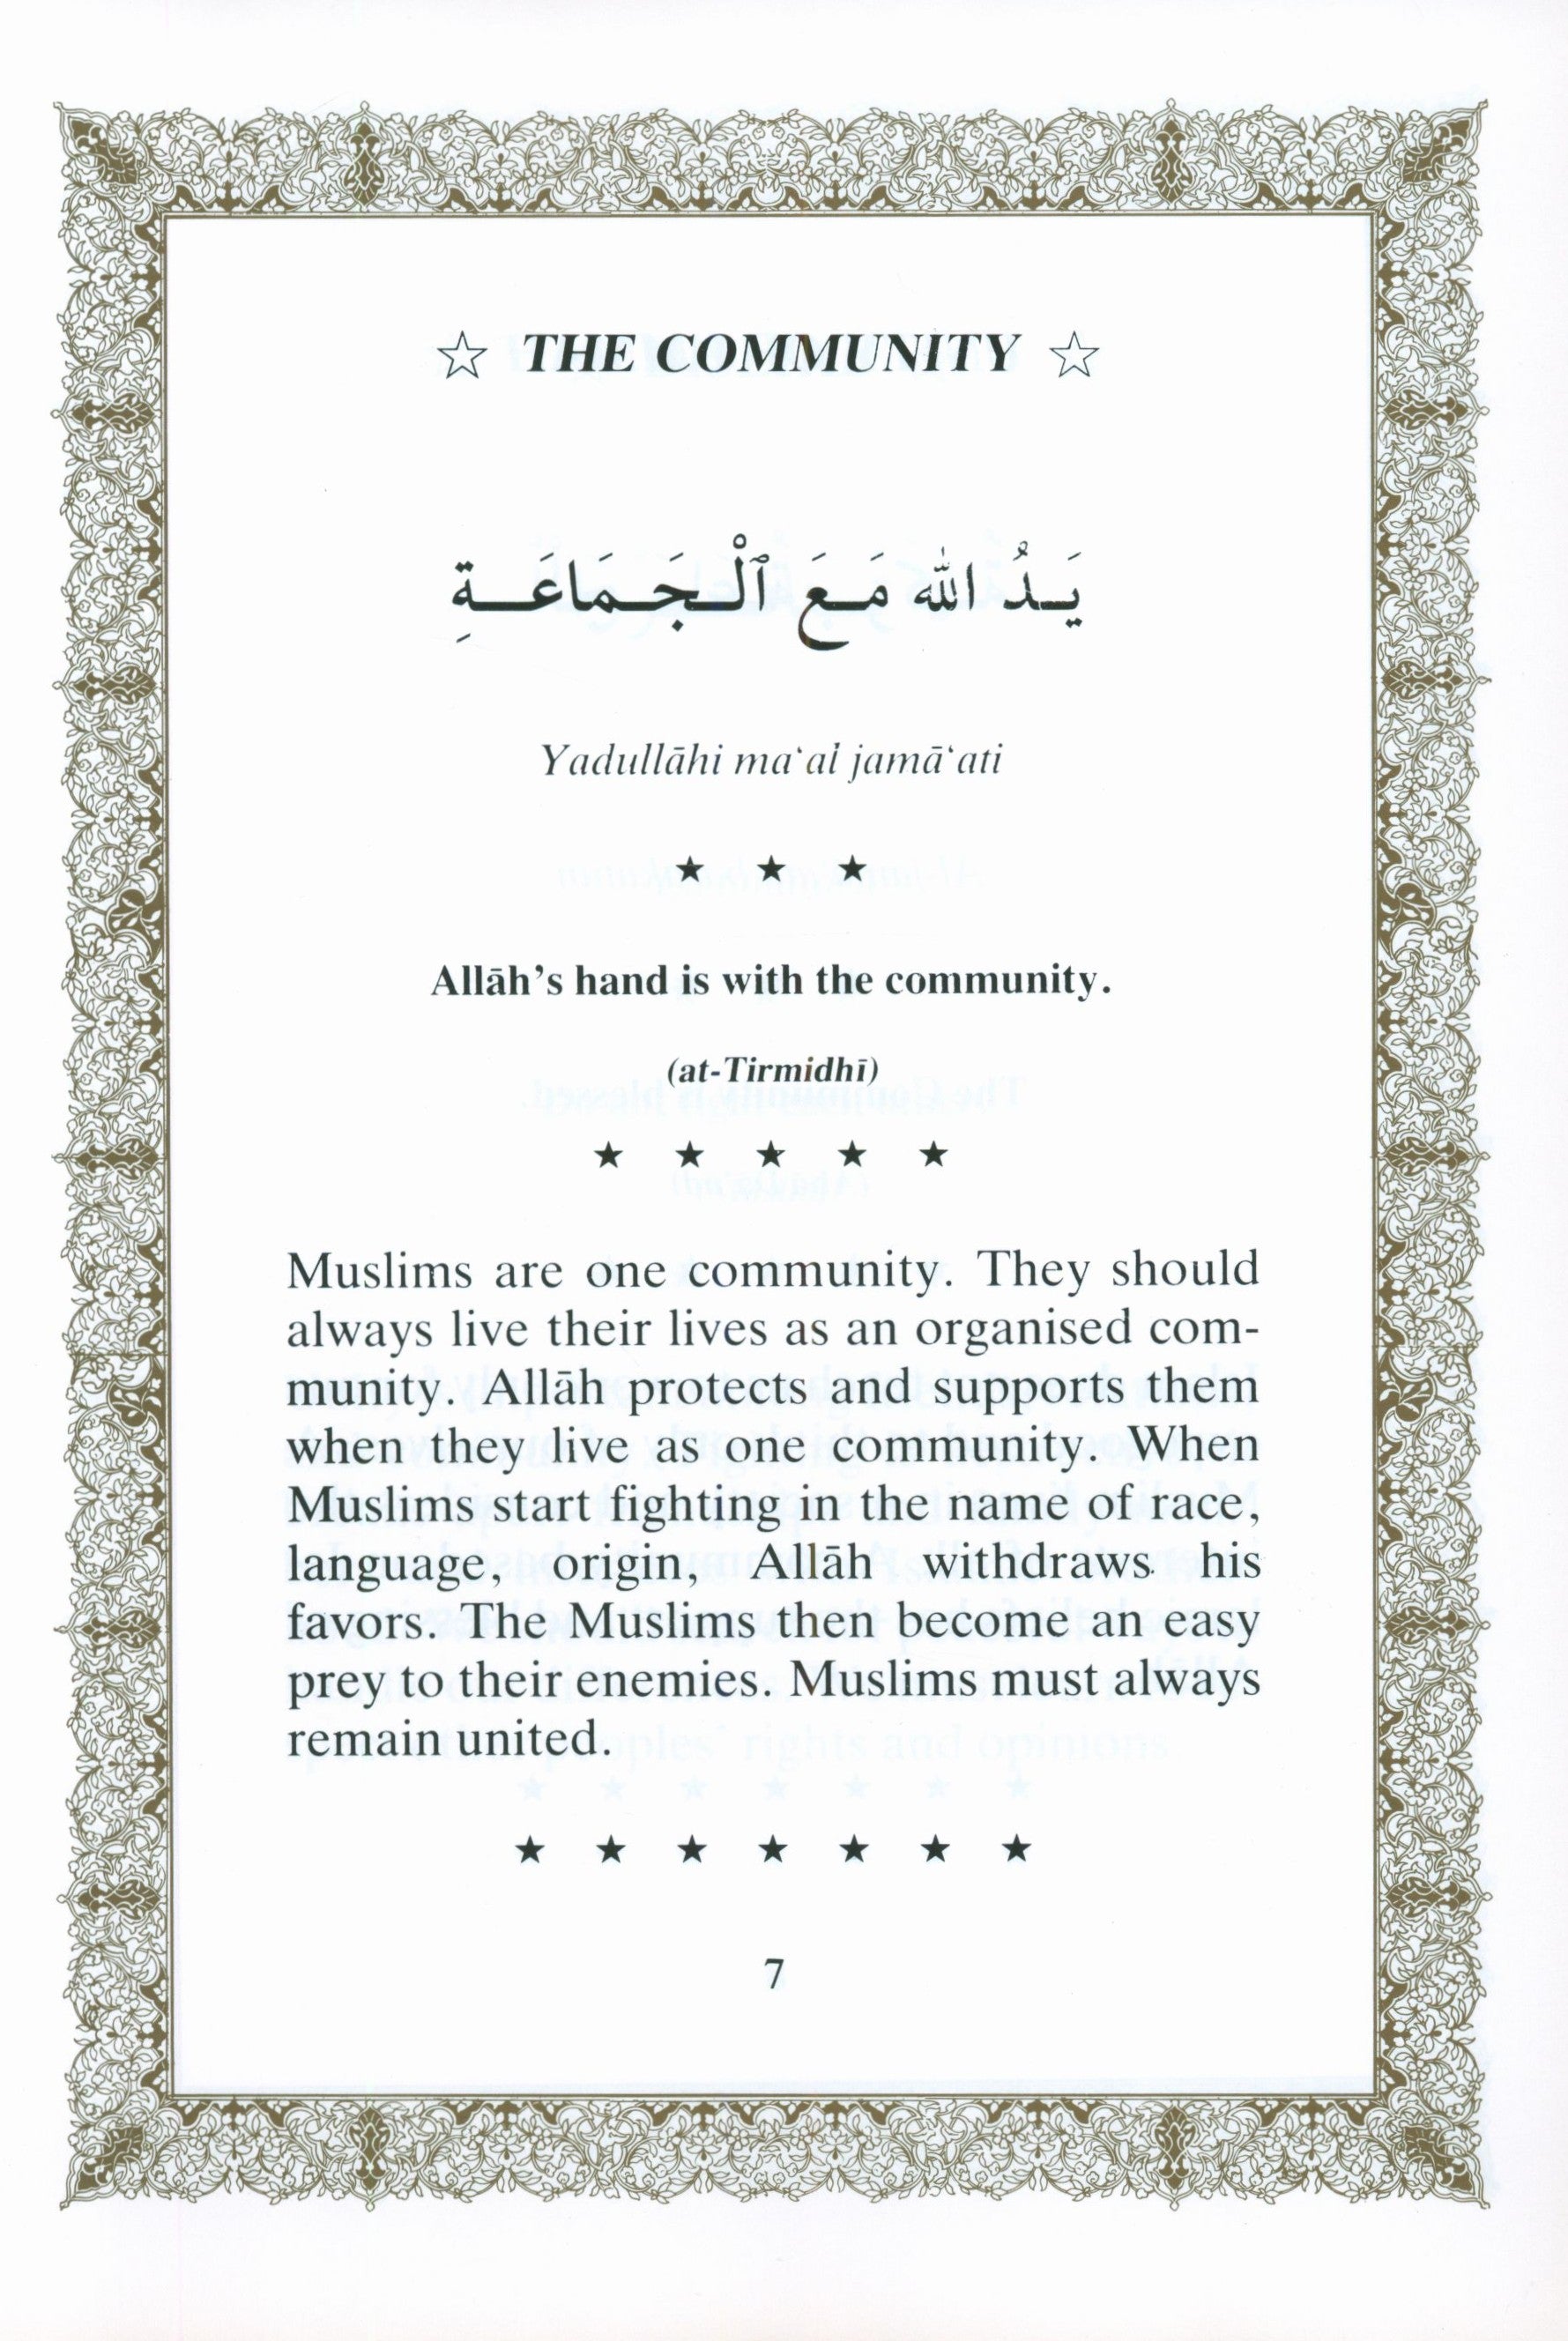 ☆ THE COMMUNITY ☆
يَـدُ الله مَـعَ ٱلْـجَـمَاعَـةِ
Yadullāhi ma‘al jamā‘ati
★ ★ ★
Allāh’s hand is with the community.
(at-Tirmidhī)
★ ★ ★ ★ ★
Muslims are one community. They should
always live their lives as an organised com-
munity. Allāh protects and supports them
when they live as one community. When
Muslims start fighting in the name of race,
language, origin, Allāh withdraws his
favors. The Muslims then become an easy
prey to their enemies. Muslims must always
remain united.
★ ★ ★ ★ ★ ★ ★
7